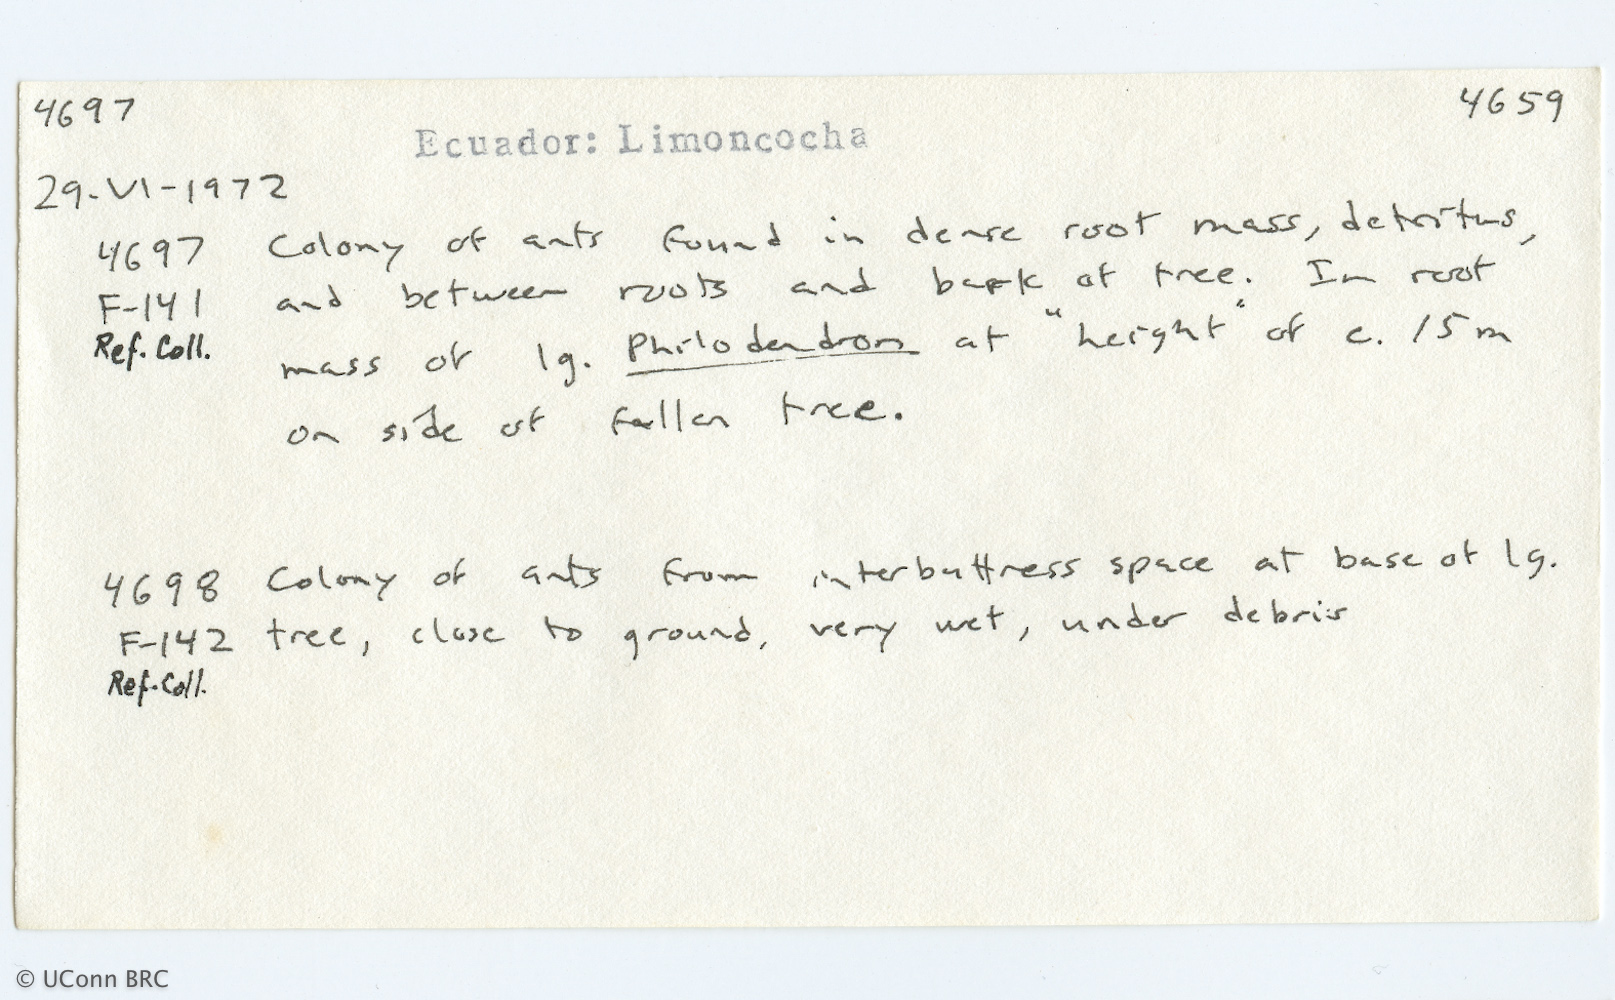 4697
4659
Ecuador: Limoncocha
29-VI-1972
4697 Colony of ants found in dense root mass, detritus,
F-141 and between roots and bark of tree. In root
Ref. Coll.
mass of lg. Philodendron at "height" of c. 15 m
on side of fallen tree.
4698 Colony of ants from interbuttress space at base of lg.
F-142 tree, close to ground, very wet, under debris
Ref. Coll.
© UConn BRC